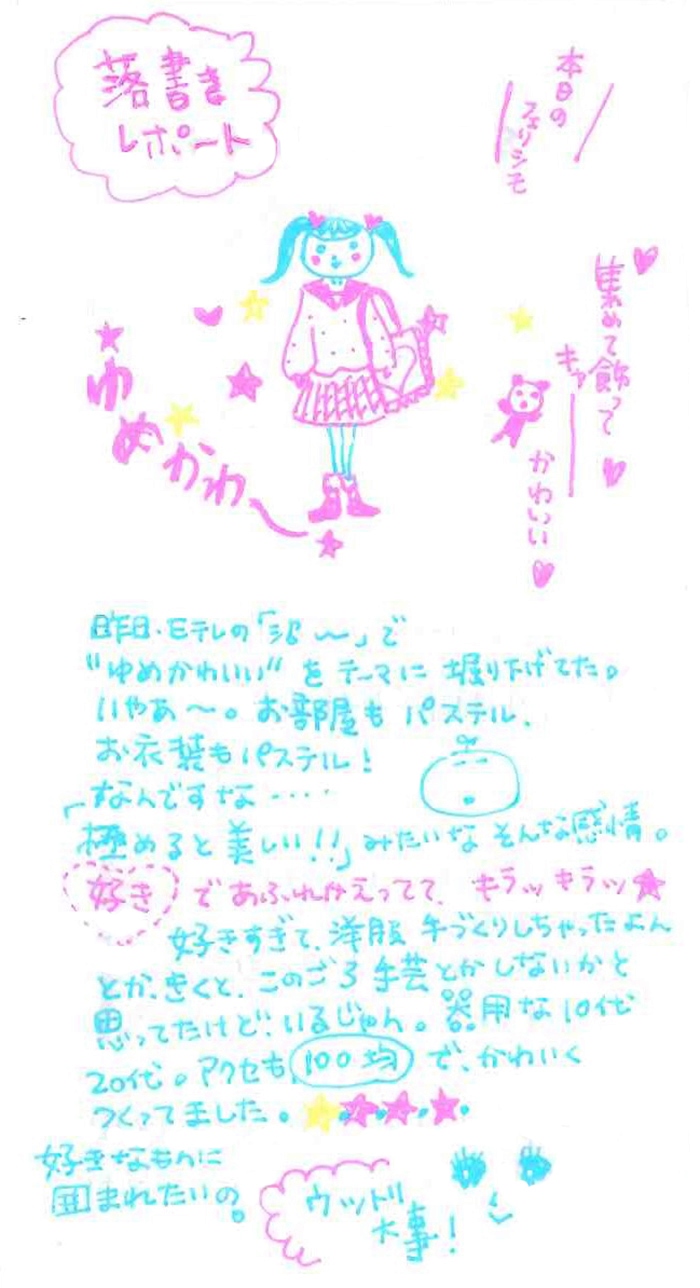 落書き
レポート
本日の
フェリシモ
集めて飾って
キャー
かわいい
ゆめかわ〜
昨日・Eテレの「沼〜」で
"ゆめかわいい"をテーマに堀り下げてた。
いやぁ〜。お部屋もパステル、
お衣装もパステル!
なんですな‥‥
「極めると美しい!!」みたいなそんな感情。
好きであふれかえってて、キラッキラッ
好きすぎて、洋服手づくりしちゃったよん
とか、きくと、このごろ手芸とかしないかと
思ってたけど、いるじゃん。器用な10代
20代。アクセも100均で、かわいく
つくってました。
好きなものに
囲まれたいの。
ウットリ
大事!